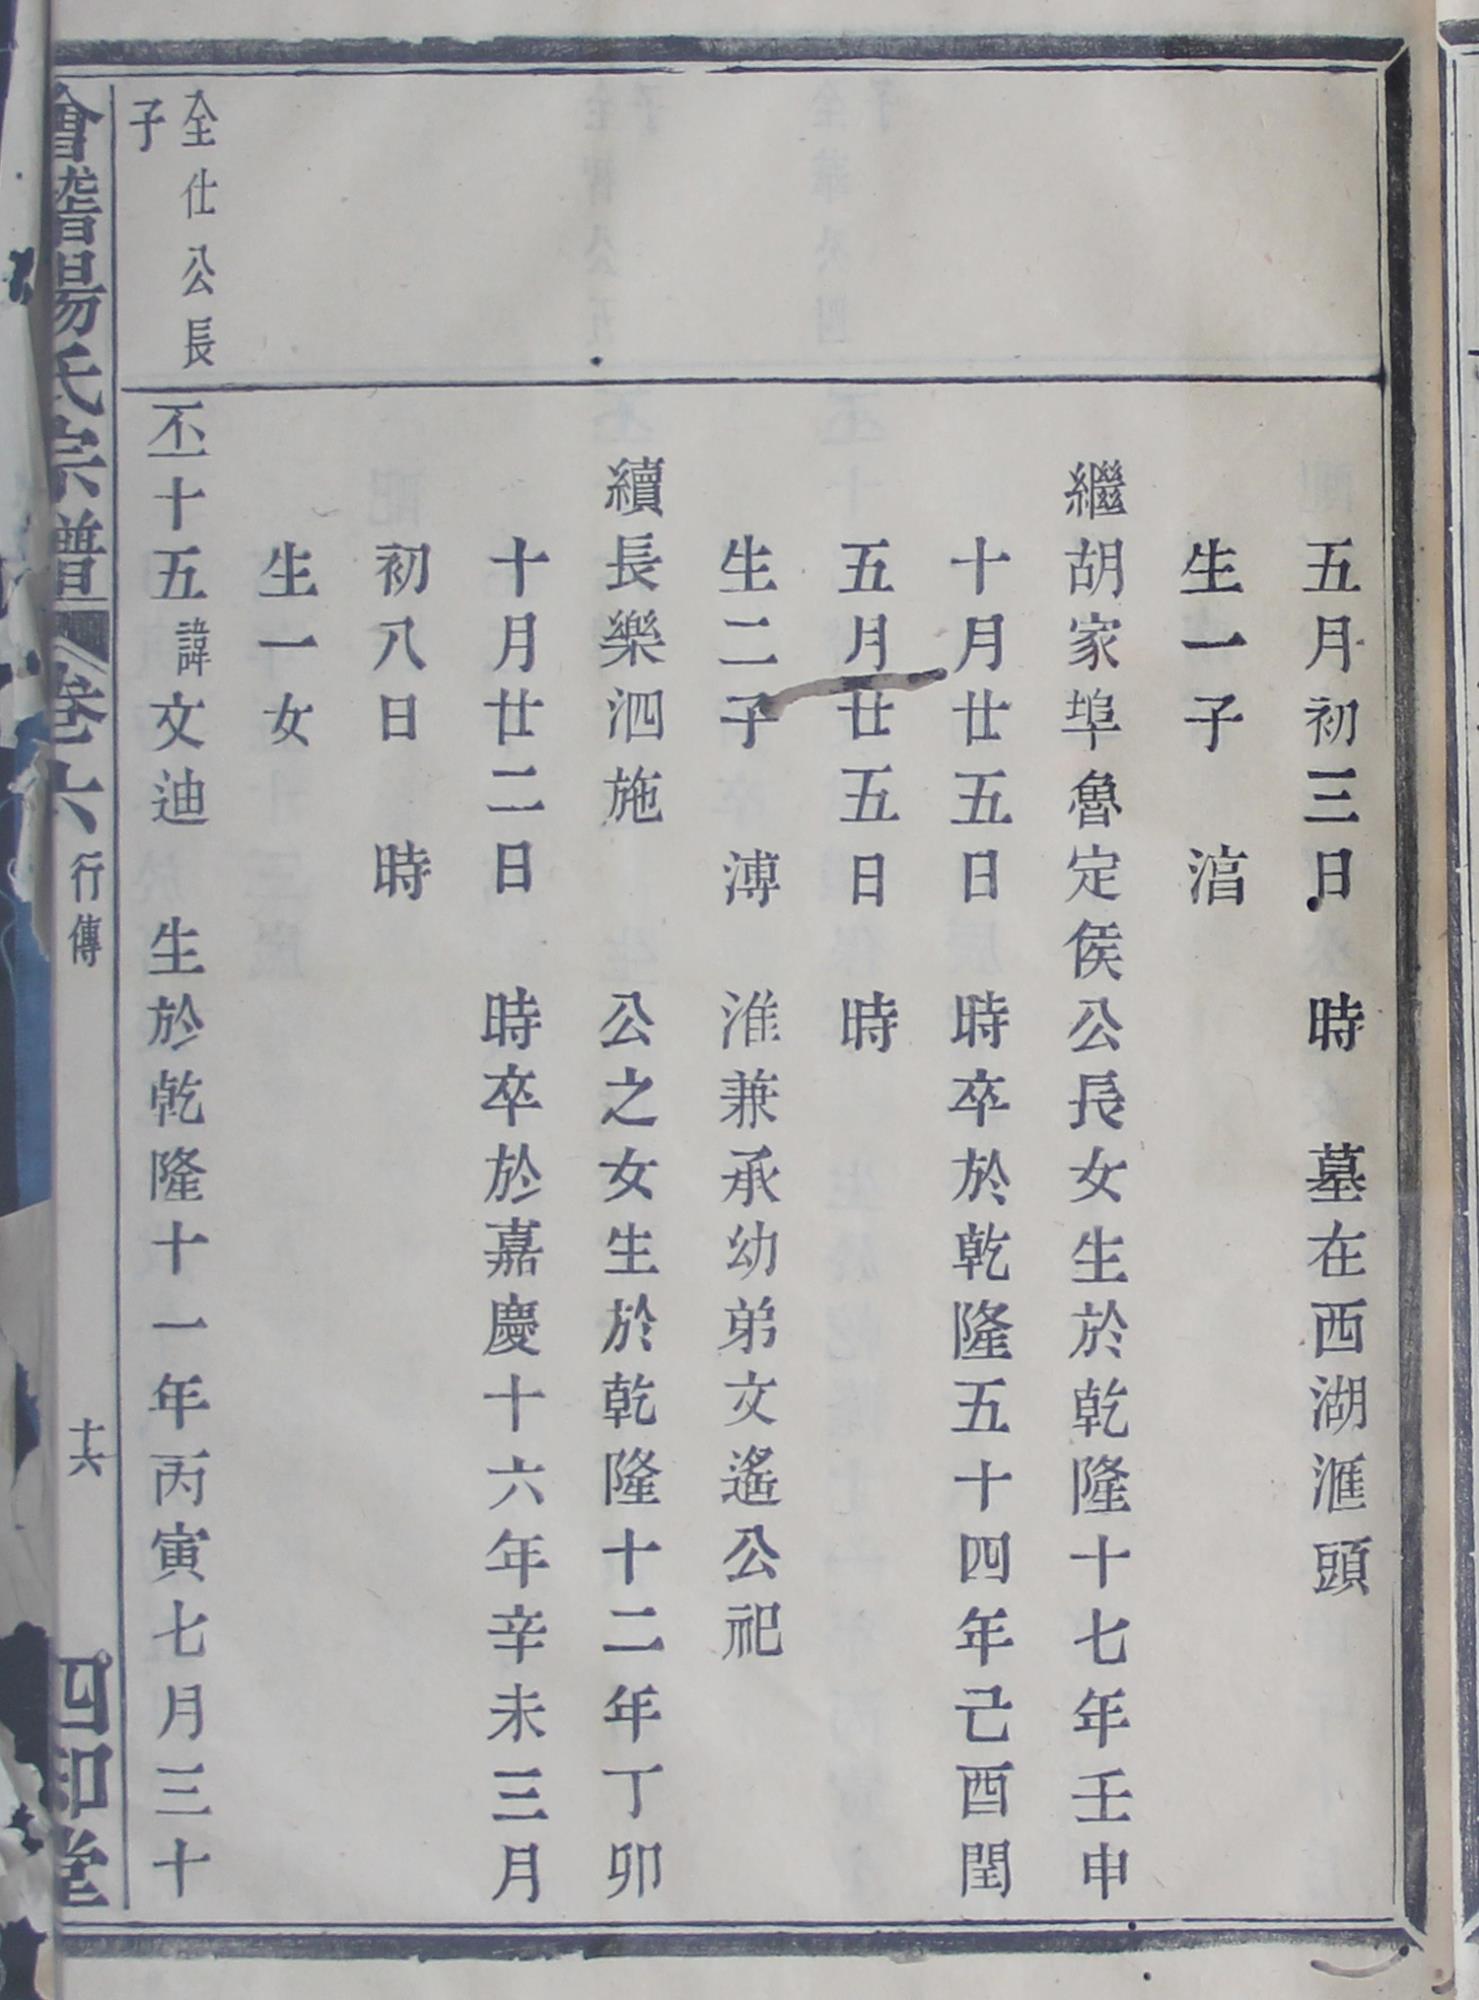 五月初三日　時　墓在西湖滙頭
生一子　湻
繼胡家埠魯定侯公長女生於乾隆十七年壬申
十月廿五日　時卒於乾隆五十四年己酉閏
五月廿五日　時
生二子　溥　淮兼承幼弟文遙公祀
續長樂泗施　公之女生於乾隆十二年丁卯
十月廿二日　時卒於嘉慶十六年辛未三月
初八日　時
生一女
全仕公長
子
丕十五諱文迪　生於乾隆十一年丙寅七月三十
會稽楊氏宗譜　卷六　行傳　十六　四知堂